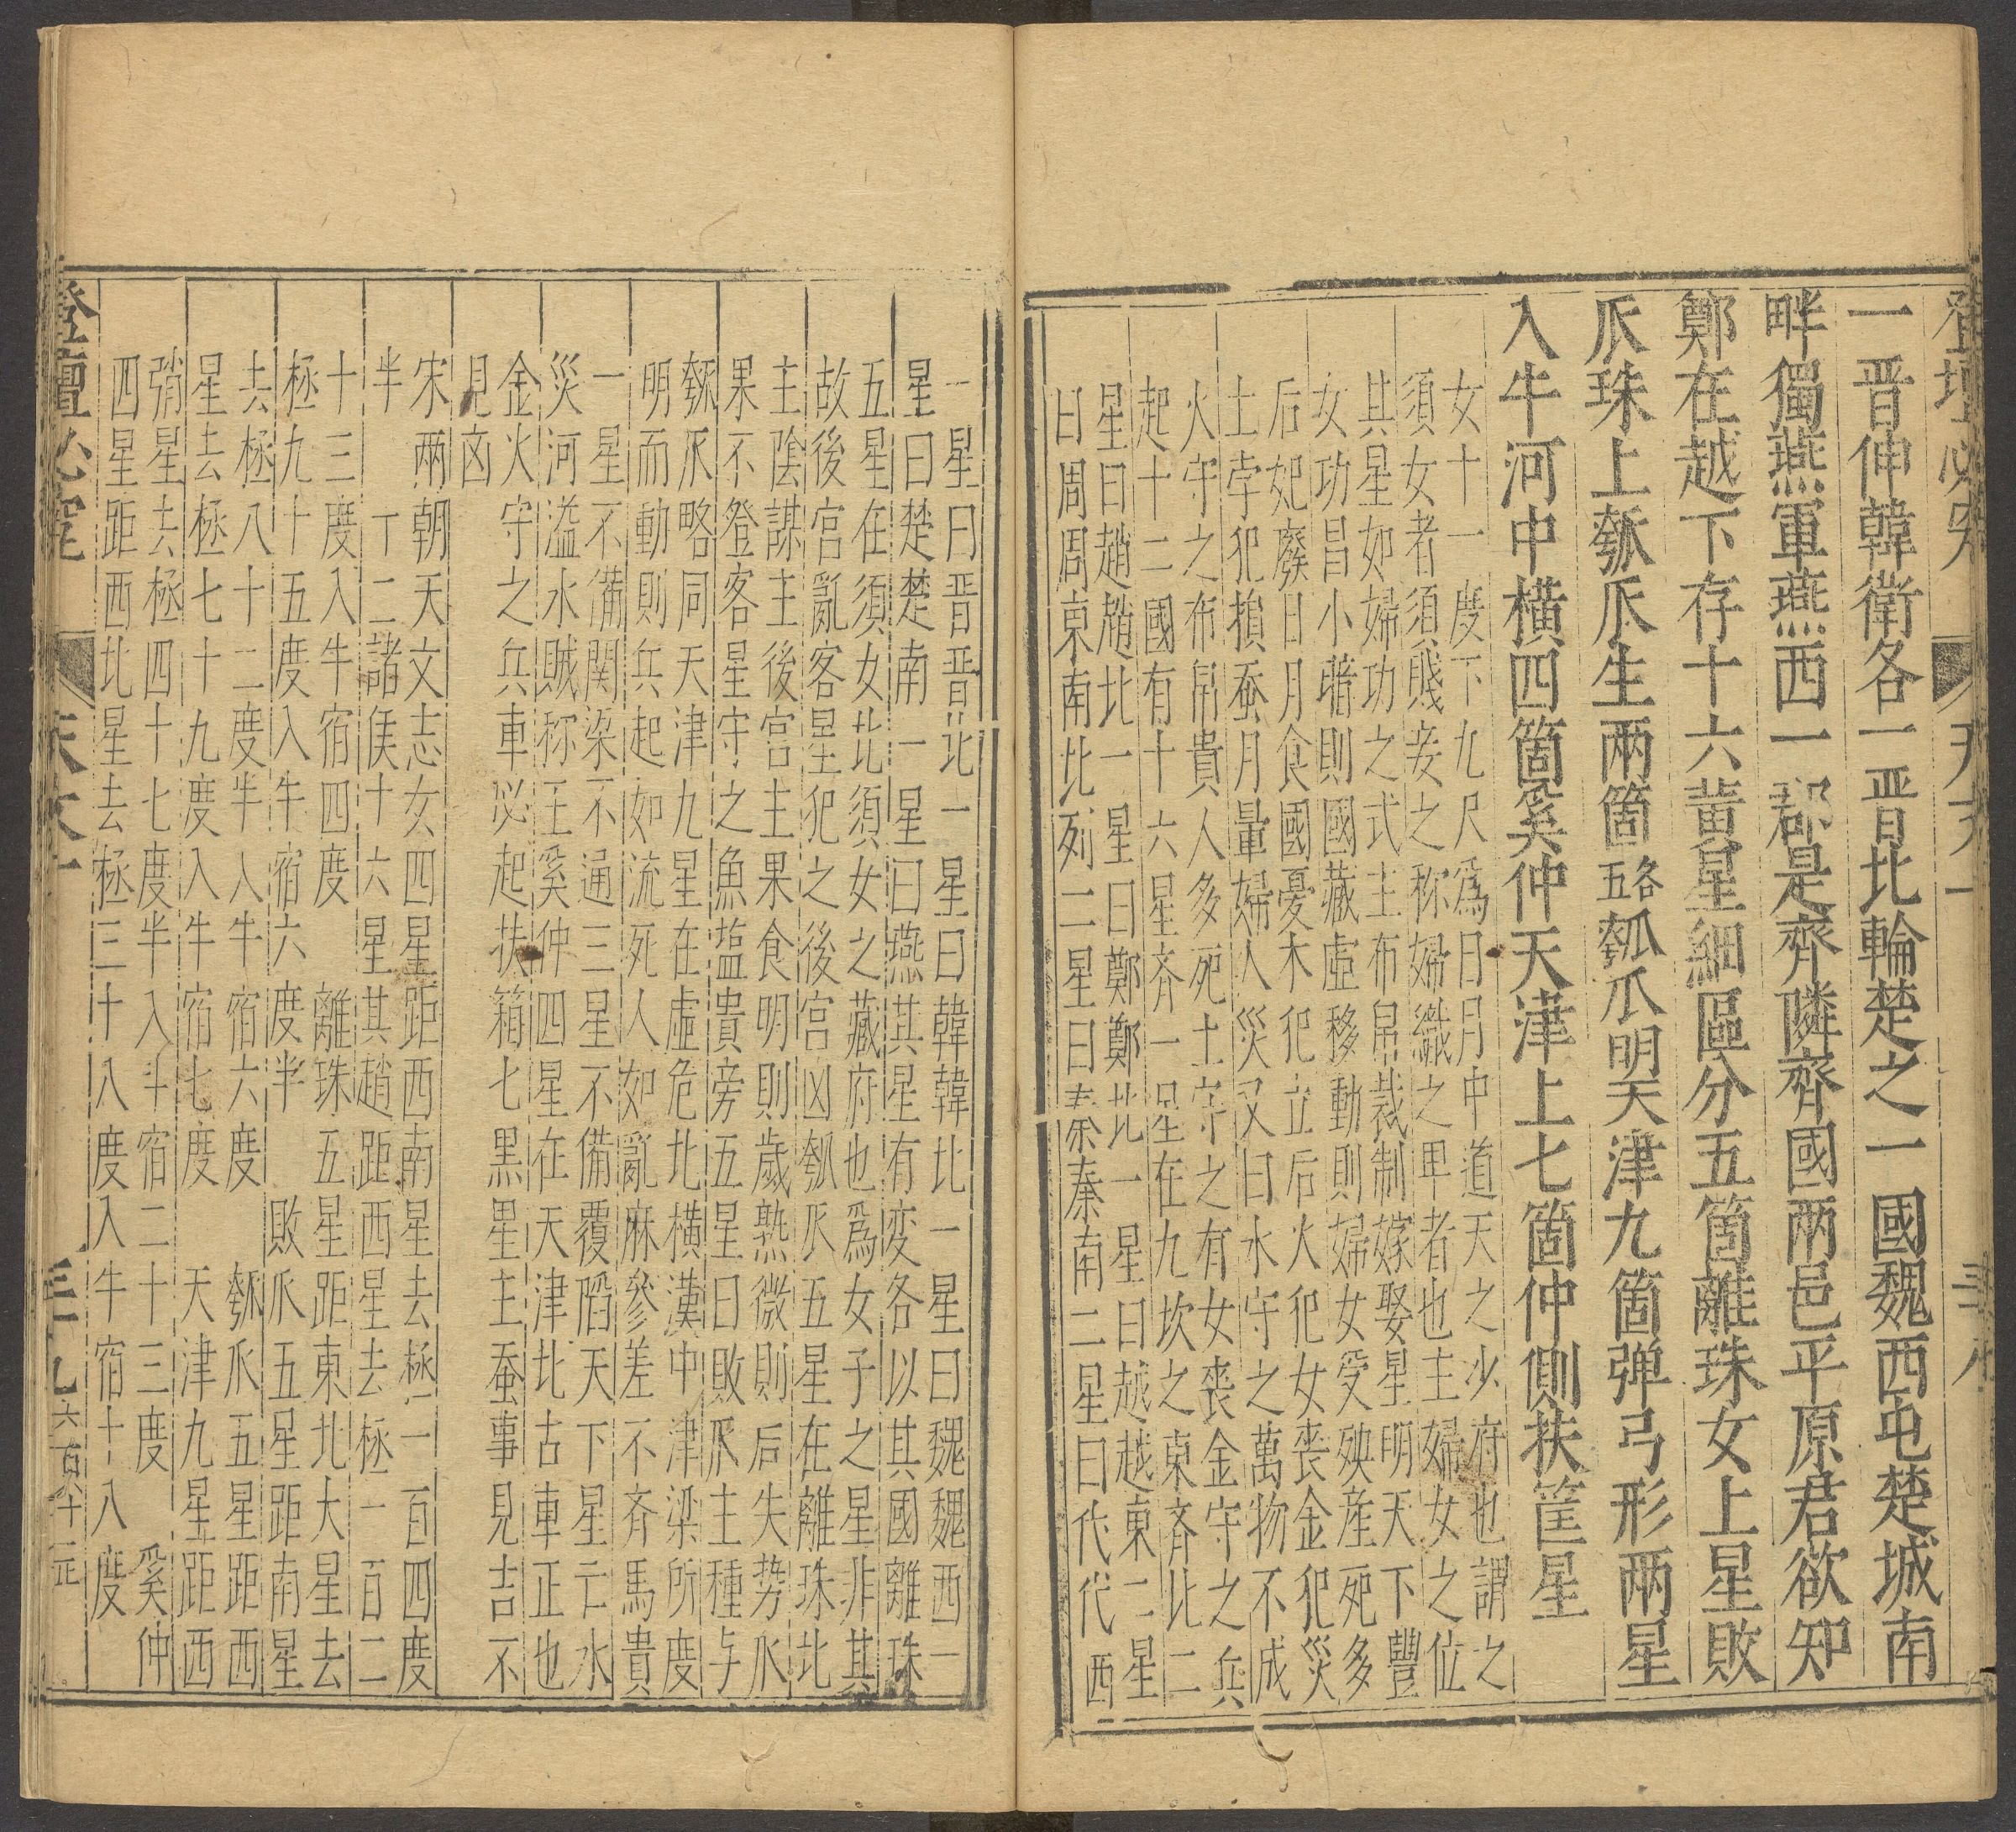 登壇必究 天文一 三十八
一晋伸韓衛各一晋北輪楚之一國魏西屯楚城南
畔獨燕軍燕西一郡是齊隣齊國兩邑平原君欲知
鄭在越下存十六黃星細區分五箇離珠女上星敗
𤓰珠上瓠𤓰生兩箇五各瓠瓜明天津九箇弹弓形兩星
入牛河中横四箇奚仲天津上七箇仲側扶筐星
女十一度下九尺爲日月中道天之少府也謂之
須女者須賤妾之称婦織之卑者也主婦女之位
其星如婦功之式主布帛裁制嫁娶星明天下豐
女功昌小暗則國藏虛移動則婦女受殃産死多
后妃廢日月食國憂木犯立后火犯女喪金犯災
土孛犯損蚕月暈婦人災又曰水守之萬物不成
火守之布帛貴人多死土守之有女喪金守之兵
起十二國有十六星齊一星在九坎之東齊北二
星曰趙趙北一星曰鄭鄭北一星曰越越東二星
曰周周東南北列二星曰秦秦南二星曰代代西
一星曰晋晋北一星曰韓韓北一星曰魏魏西一
星曰楚楚南一星曰燕其星有変各以其國離珠
五星在須女北須女之藏府也爲女子之星非其
故後宫亂客星犯之後宫凶瓠𤓰五星在離珠北
主陰謀主後宫主果食明則歲熟微則后失势𤓰
果不登客星守之魚塩貴旁五星曰敗𤓰主種与
瓠𤓰略同天津九星在虛危北横漢中津梁所度
明而動則兵起如流死人如亂麻參差不齊馬貴
一星不備関梁不通三星不備覆陷天下星亡水
災河溢水賊称王奚仲四星在天津北古車正也
金火守之兵車必起扶箱七黒星主蚕事見吉不
見凶
宋兩朝天文志女四星距西南星去極一百四度
半十二諸侯十六星其趙距西星去極一百二
十三度入牛宿四度離珠五星距東北大星去
極九十五度入牛宿六度半敗𤓰五星距南星
去極八十二度半入牛宿六度瓠𤓰五星距西
星去極七十九度入牛宿七度天津九星距西
弰星去極四十七度半入斗宿二十三度奚仲
四星距西北星去極三十八度入牛宿十八度
登壇必究 天文一 三十九